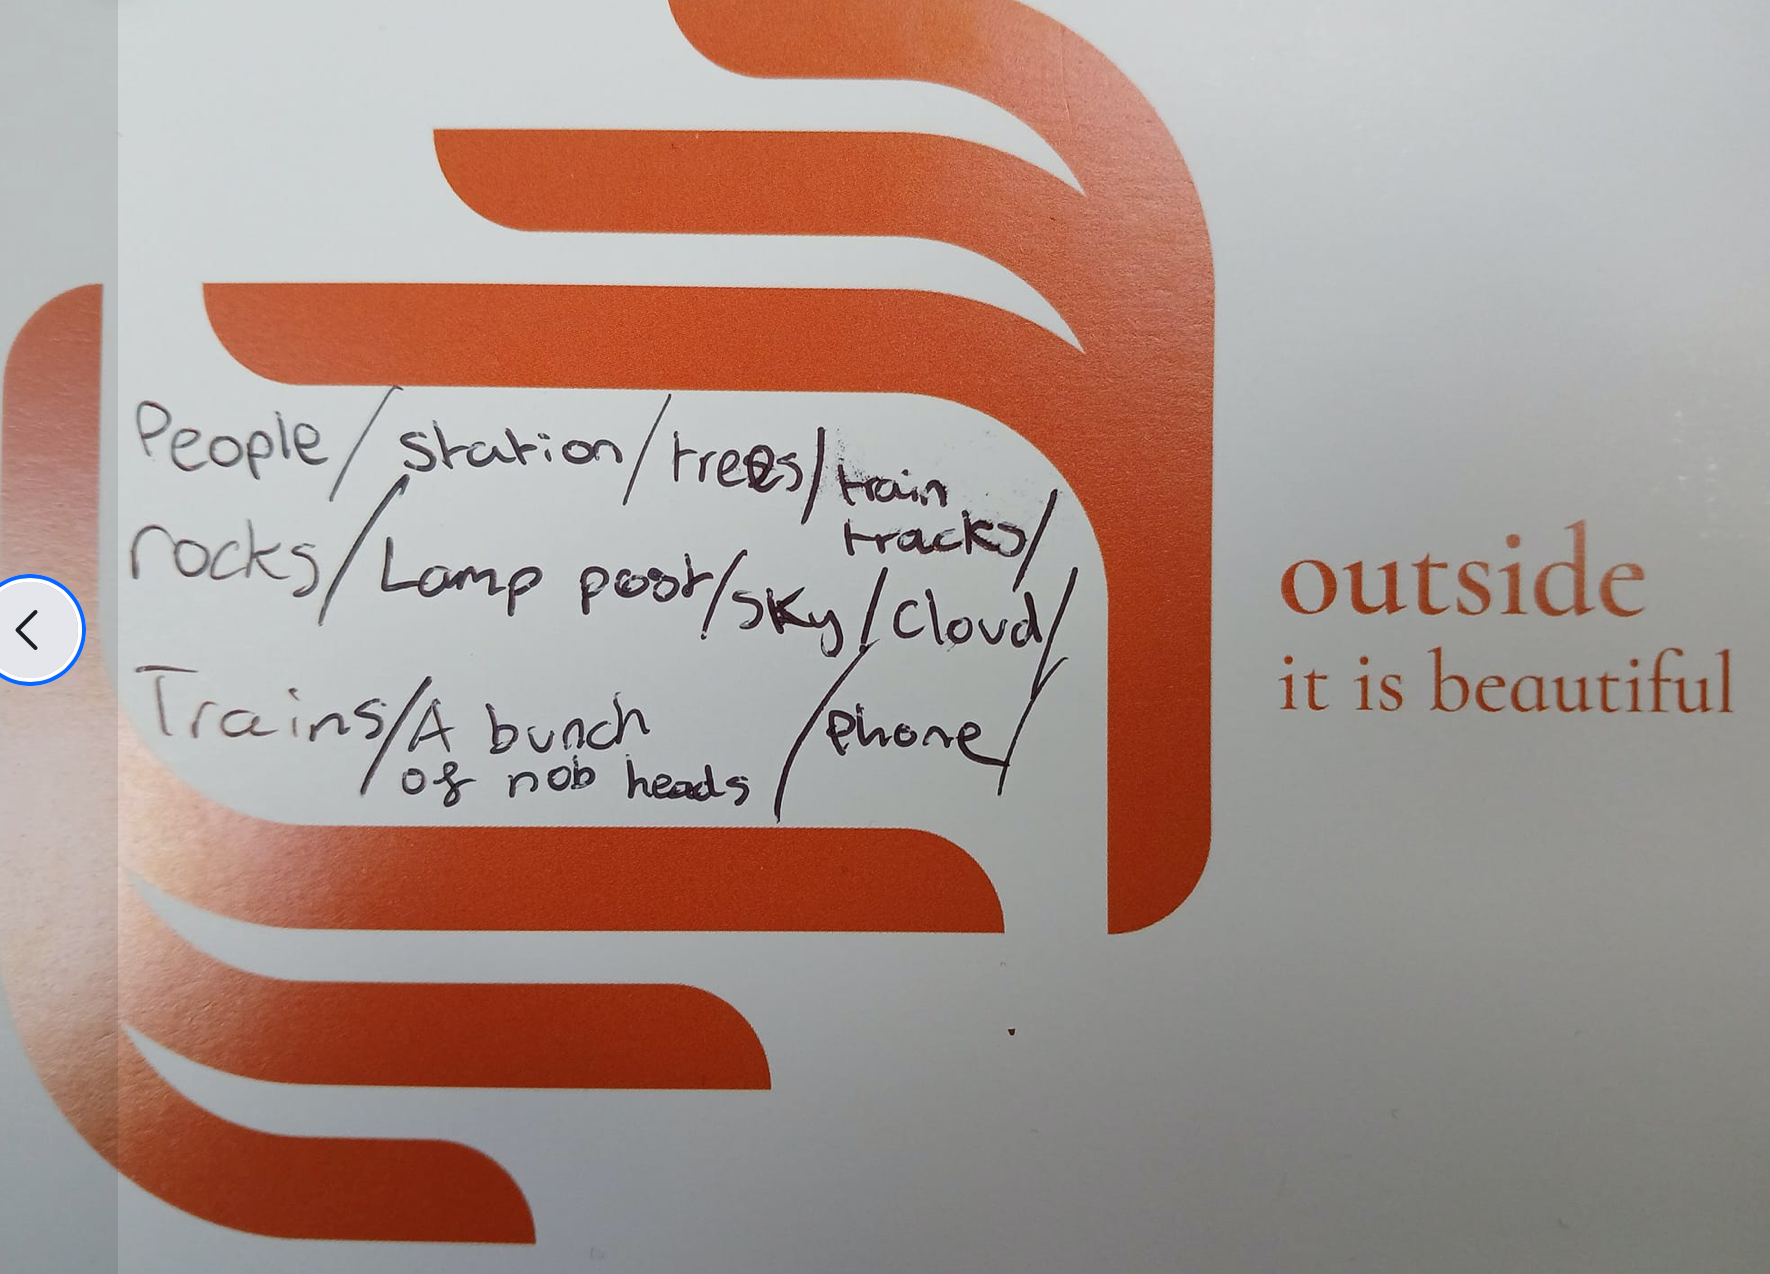 People / Station / trees / train
tracks /
rocks / Lamp post / sky / Cloud /
Trains / A bunch / phone /
of nob heads
outside
it is beautiful